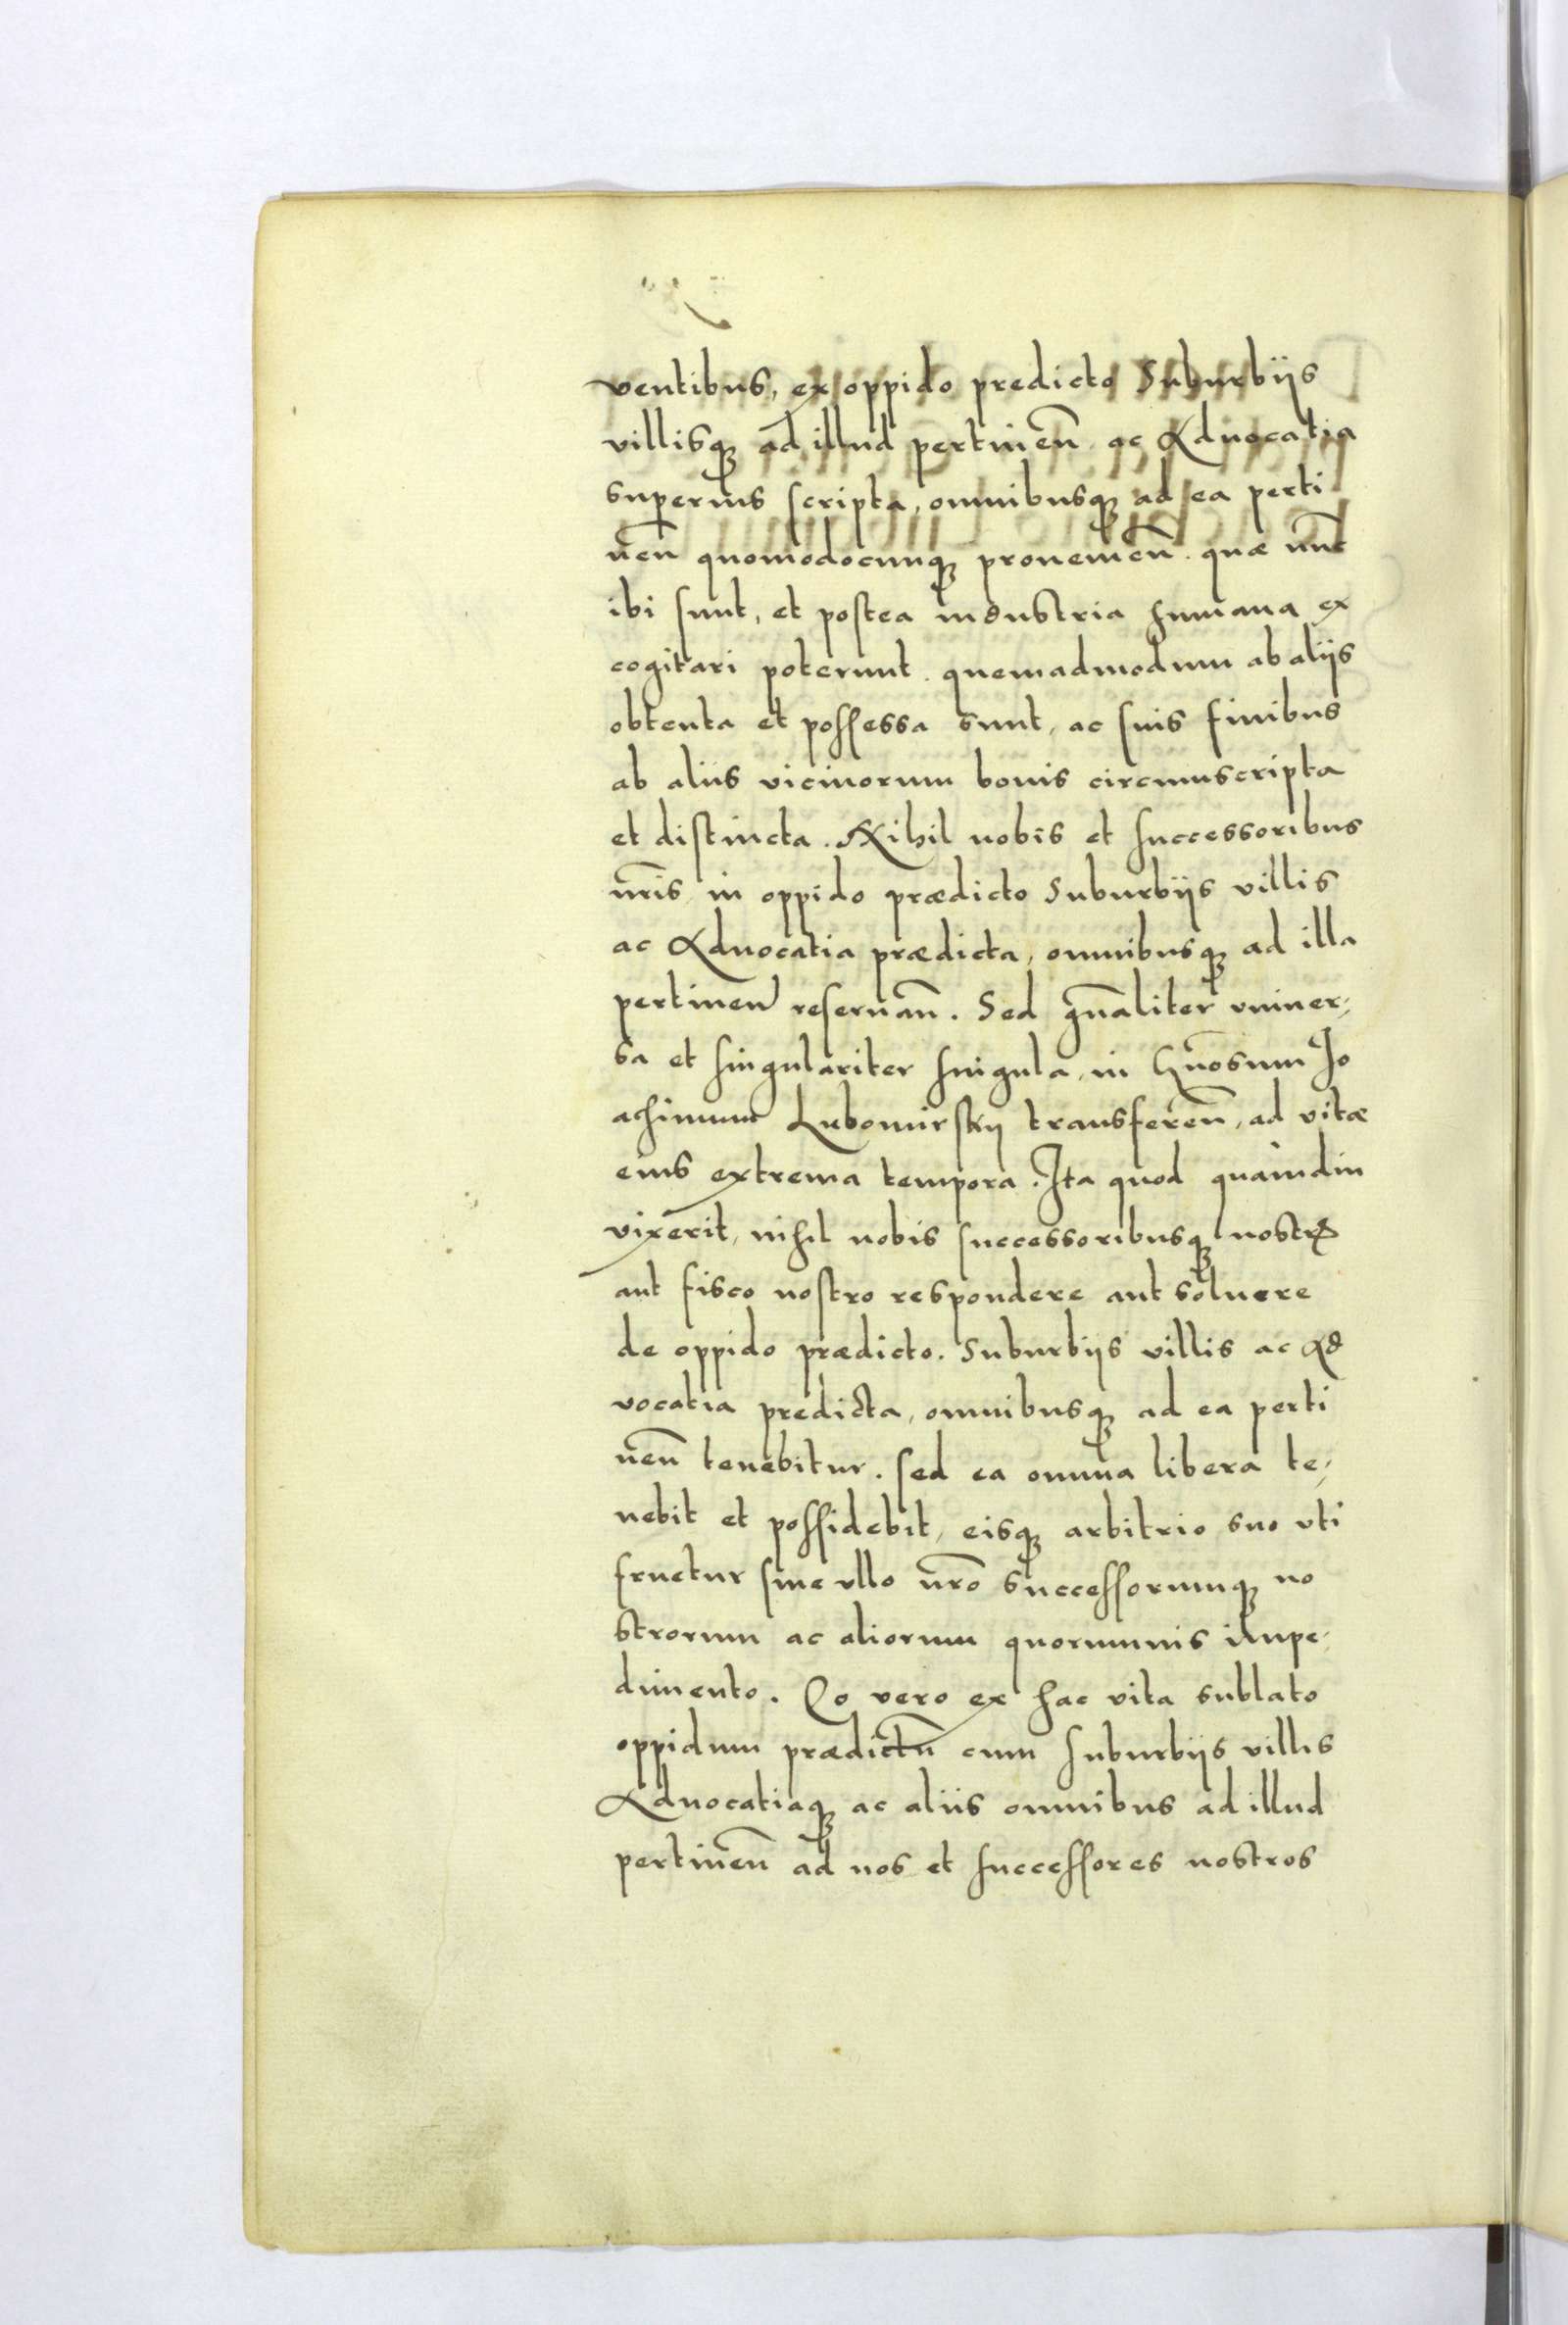 ventibus, ex oppido predicto Suburbijs
villisq3 ad illud pertineñ ac Aduocatia
superius scripta, omnibusq3 ad ea perti
neñ quomodocunq3 proueniẽn. quæ nũc
ibi sunt, et postea industria humana ex
cogitari poterunt. quemadmodum ab alijs
obtenta et possessa sunt, ac suis finibus
ab aliis vicinorum bonis circumscripta
et distincta. Nihil nobis et successoribus
nr̃is in oppido prædicto Suburbijs villis
ac Aduocatia prædicta, omnibusq3 ad illa
pertinen̄ reseruañ. Sed gñaliter vniuer,
sa et singulariter singula, in Gñosum Jo
achimum Lubomirskij transfereñ, ad vitæ
eius extrema tempora. Ita quod quamdiu
vixerit, nihil nobis successoribusq3 nostrꝭ
aut fisco nostro respondere aut soluere
de oppido prædicto. Suburbijs villis ac Ad
vocatia predicta, omnibusq3 ad ea perti
neñ tenebitur. Sed ea omnia libera te,
nebit et possidebit, eisq3 arbitrio suo vti
fruetur sine vllo nr̃o successorumq3 no
strorum ac aliorum quorumuis impe,
dimento. Eo vero ex hac vita sublato
oppidum prædictũ cum suburbijs villis
Aduocatiaq3 ac aliis omnibus ad illud
pertineñ ad nos et successores nostros